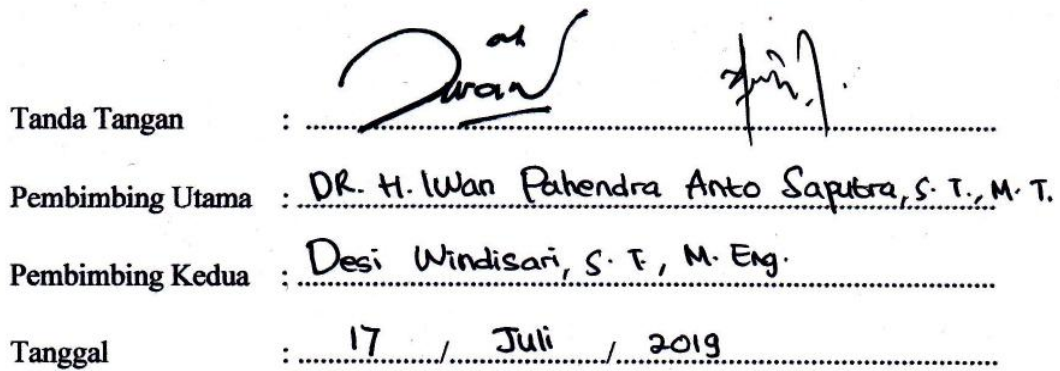 Tanda Tangan : Iwan
Pembimbing Utama : DR. H. Iwan Pahendra Anto Saputra, S. T., M. T.
Pembimbing Kedua : Desi Windisari, S. T., M. Eng.
Tanggal : 17 / Juli / 2019